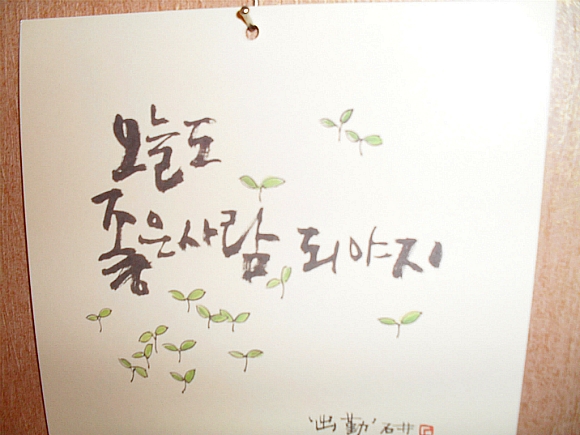 오늘도
좋은사람 되야지
'出勤'